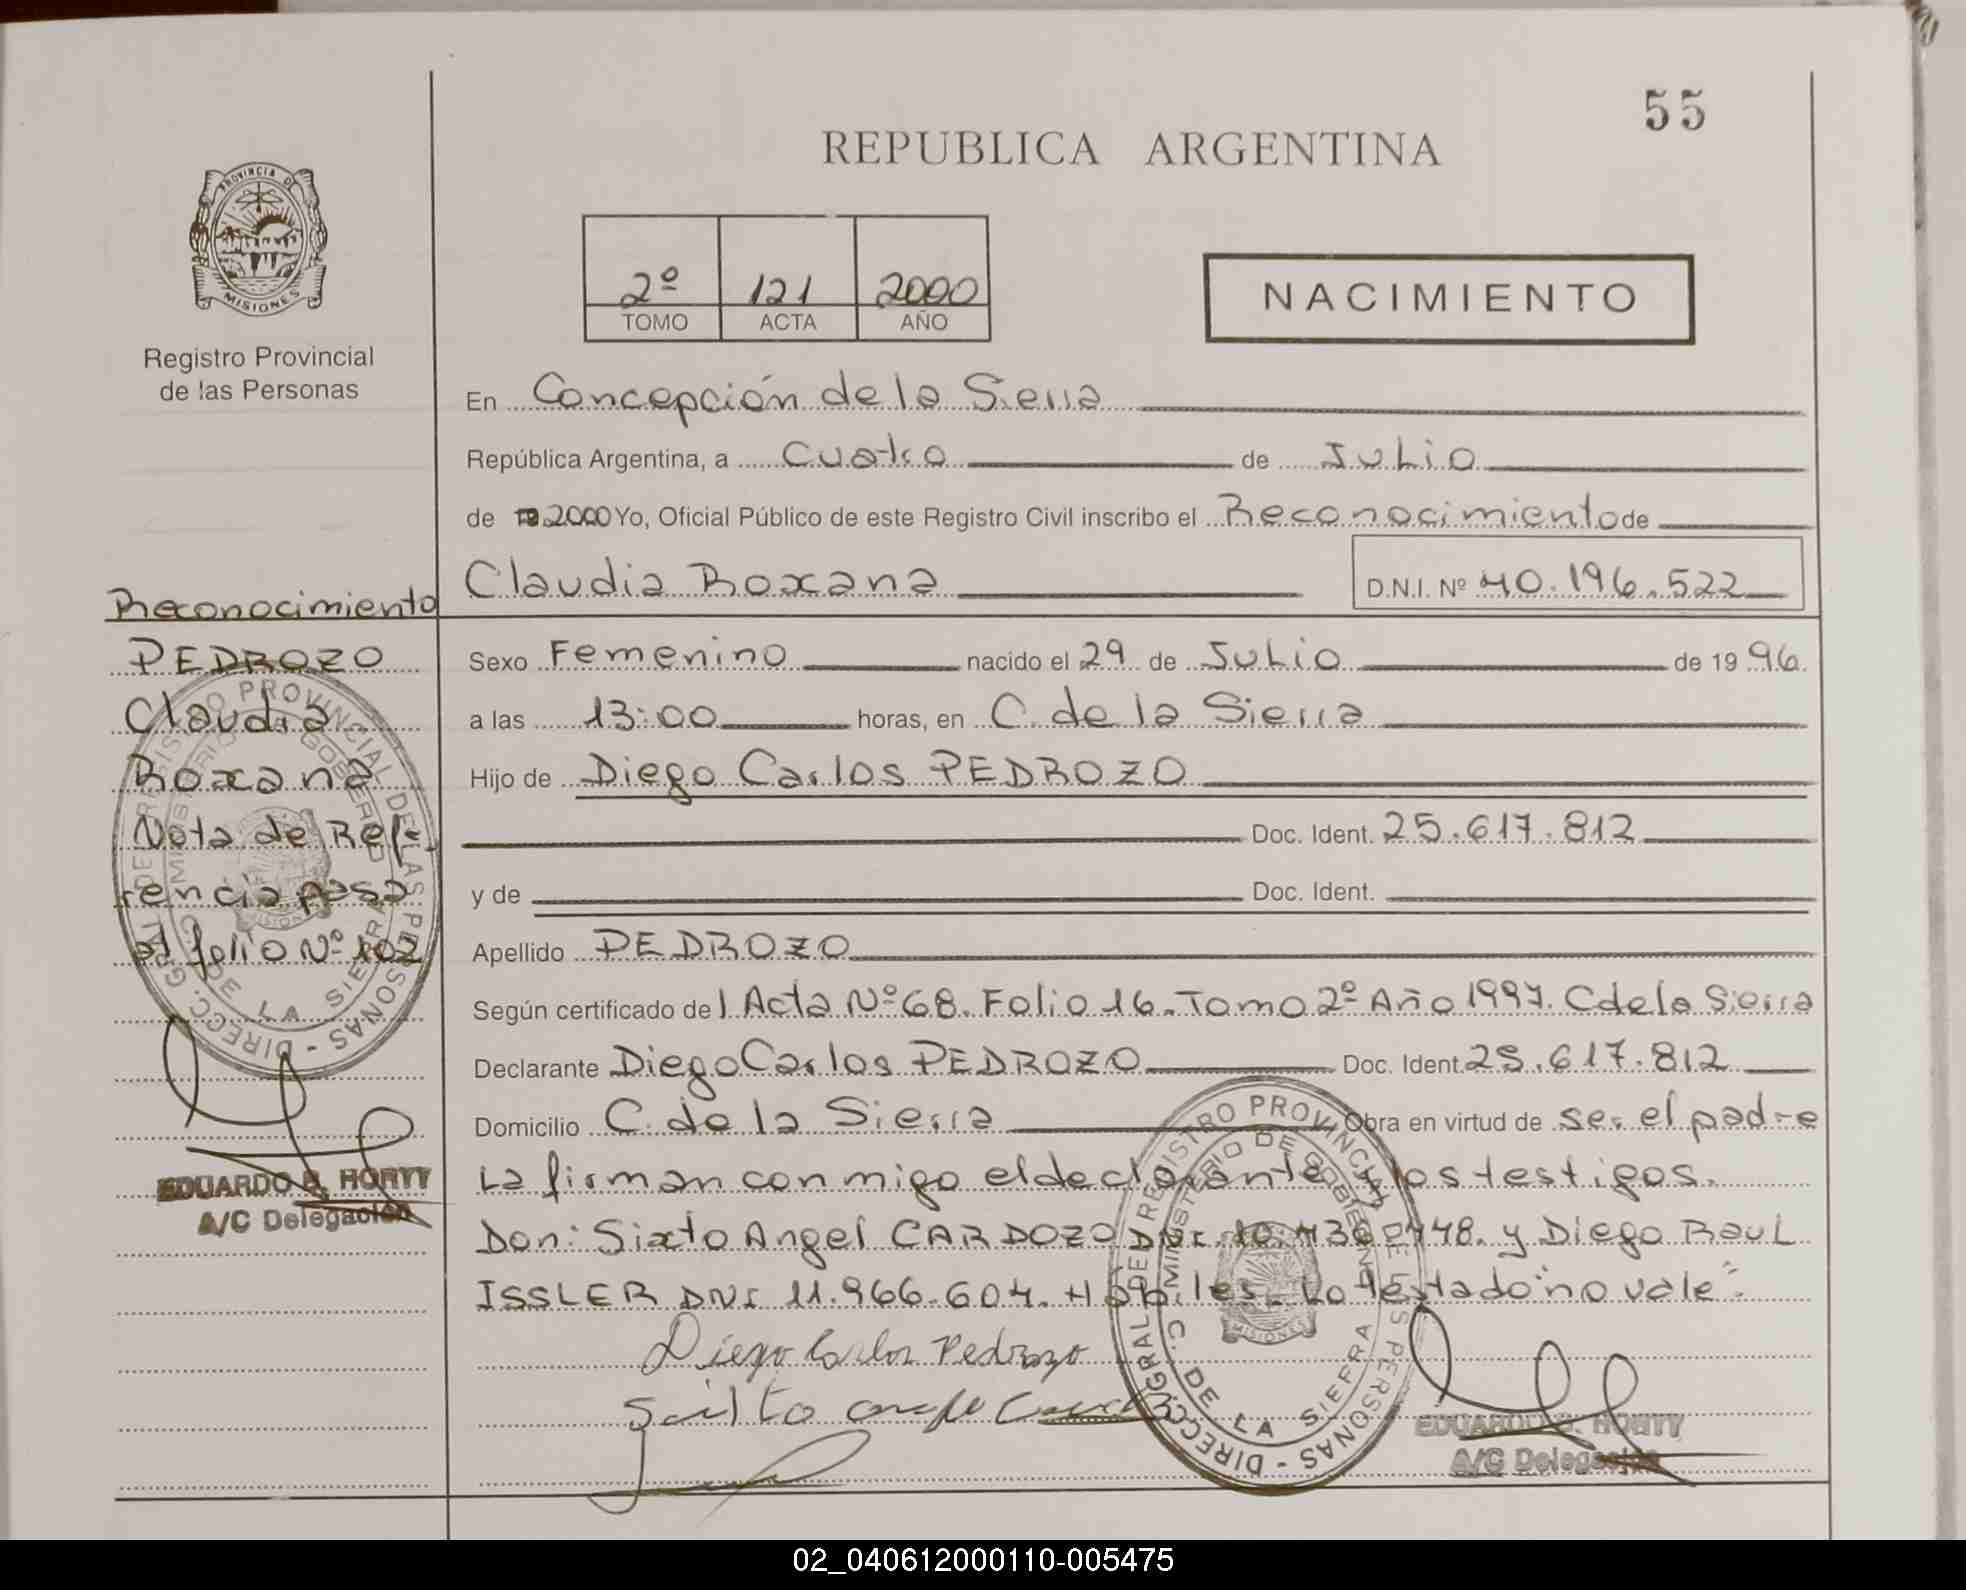 55
REPUBLICA ARGENTINA
PROVINCIA DE
MISIONES
2º 121 2000
TOMO ACTA AÑO
NACIMIENTO
Registro Provincial
de las Personas
En Concepción de la Sierra
República Argentina, a Cuatro de Julio
de 2000 Yo, Oficial Público de este Registro Civil inscribo el Reconocimiento de
Claudia Roxana D.N.I. Nº 40.196.522
Reconocimiento
PEDROZO
Claudia
Roxana
Nota de Refe
rencia pasa
al folio Nº 102
EDUARDO R. HORTT
A/C Delegación
Sexo Femenino nacido el 29 de Julio de 1996.
a las 13:00 horas, en C. de la Sierra
Hijo de Diego Carlos PEDROZO
Doc. Ident. 25.617.812
y de Doc. Ident.
Apellido PEDROZO
Según certificado de Acta Nº 68. Folio 16. Tomo 2º Año 1997. C de la Sierra
Declarante Diego Carlos PEDROZO Doc. Ident. 25.617.812
Domicilio C. de la Sierra Obra en virtud de ser el padre
La firman con migo el declarante y los testigos.
Don: Sixto Angel CARDOZO DNI. y Diego Raul
ISSLER DNI 11.966.604. Hábiles. Lo testado "no vale".
Diego Carlos Pedrozo
DIRECC. GRAL. DEL REGISTRO PROVINCIAL DE LAS PERSONAS
MINISTERIO DE GOBIERNO
C. DE LA SIERRA
MISIONES
EDUARDO R. HORTT
A/C Delegación
02_040612000110-005475